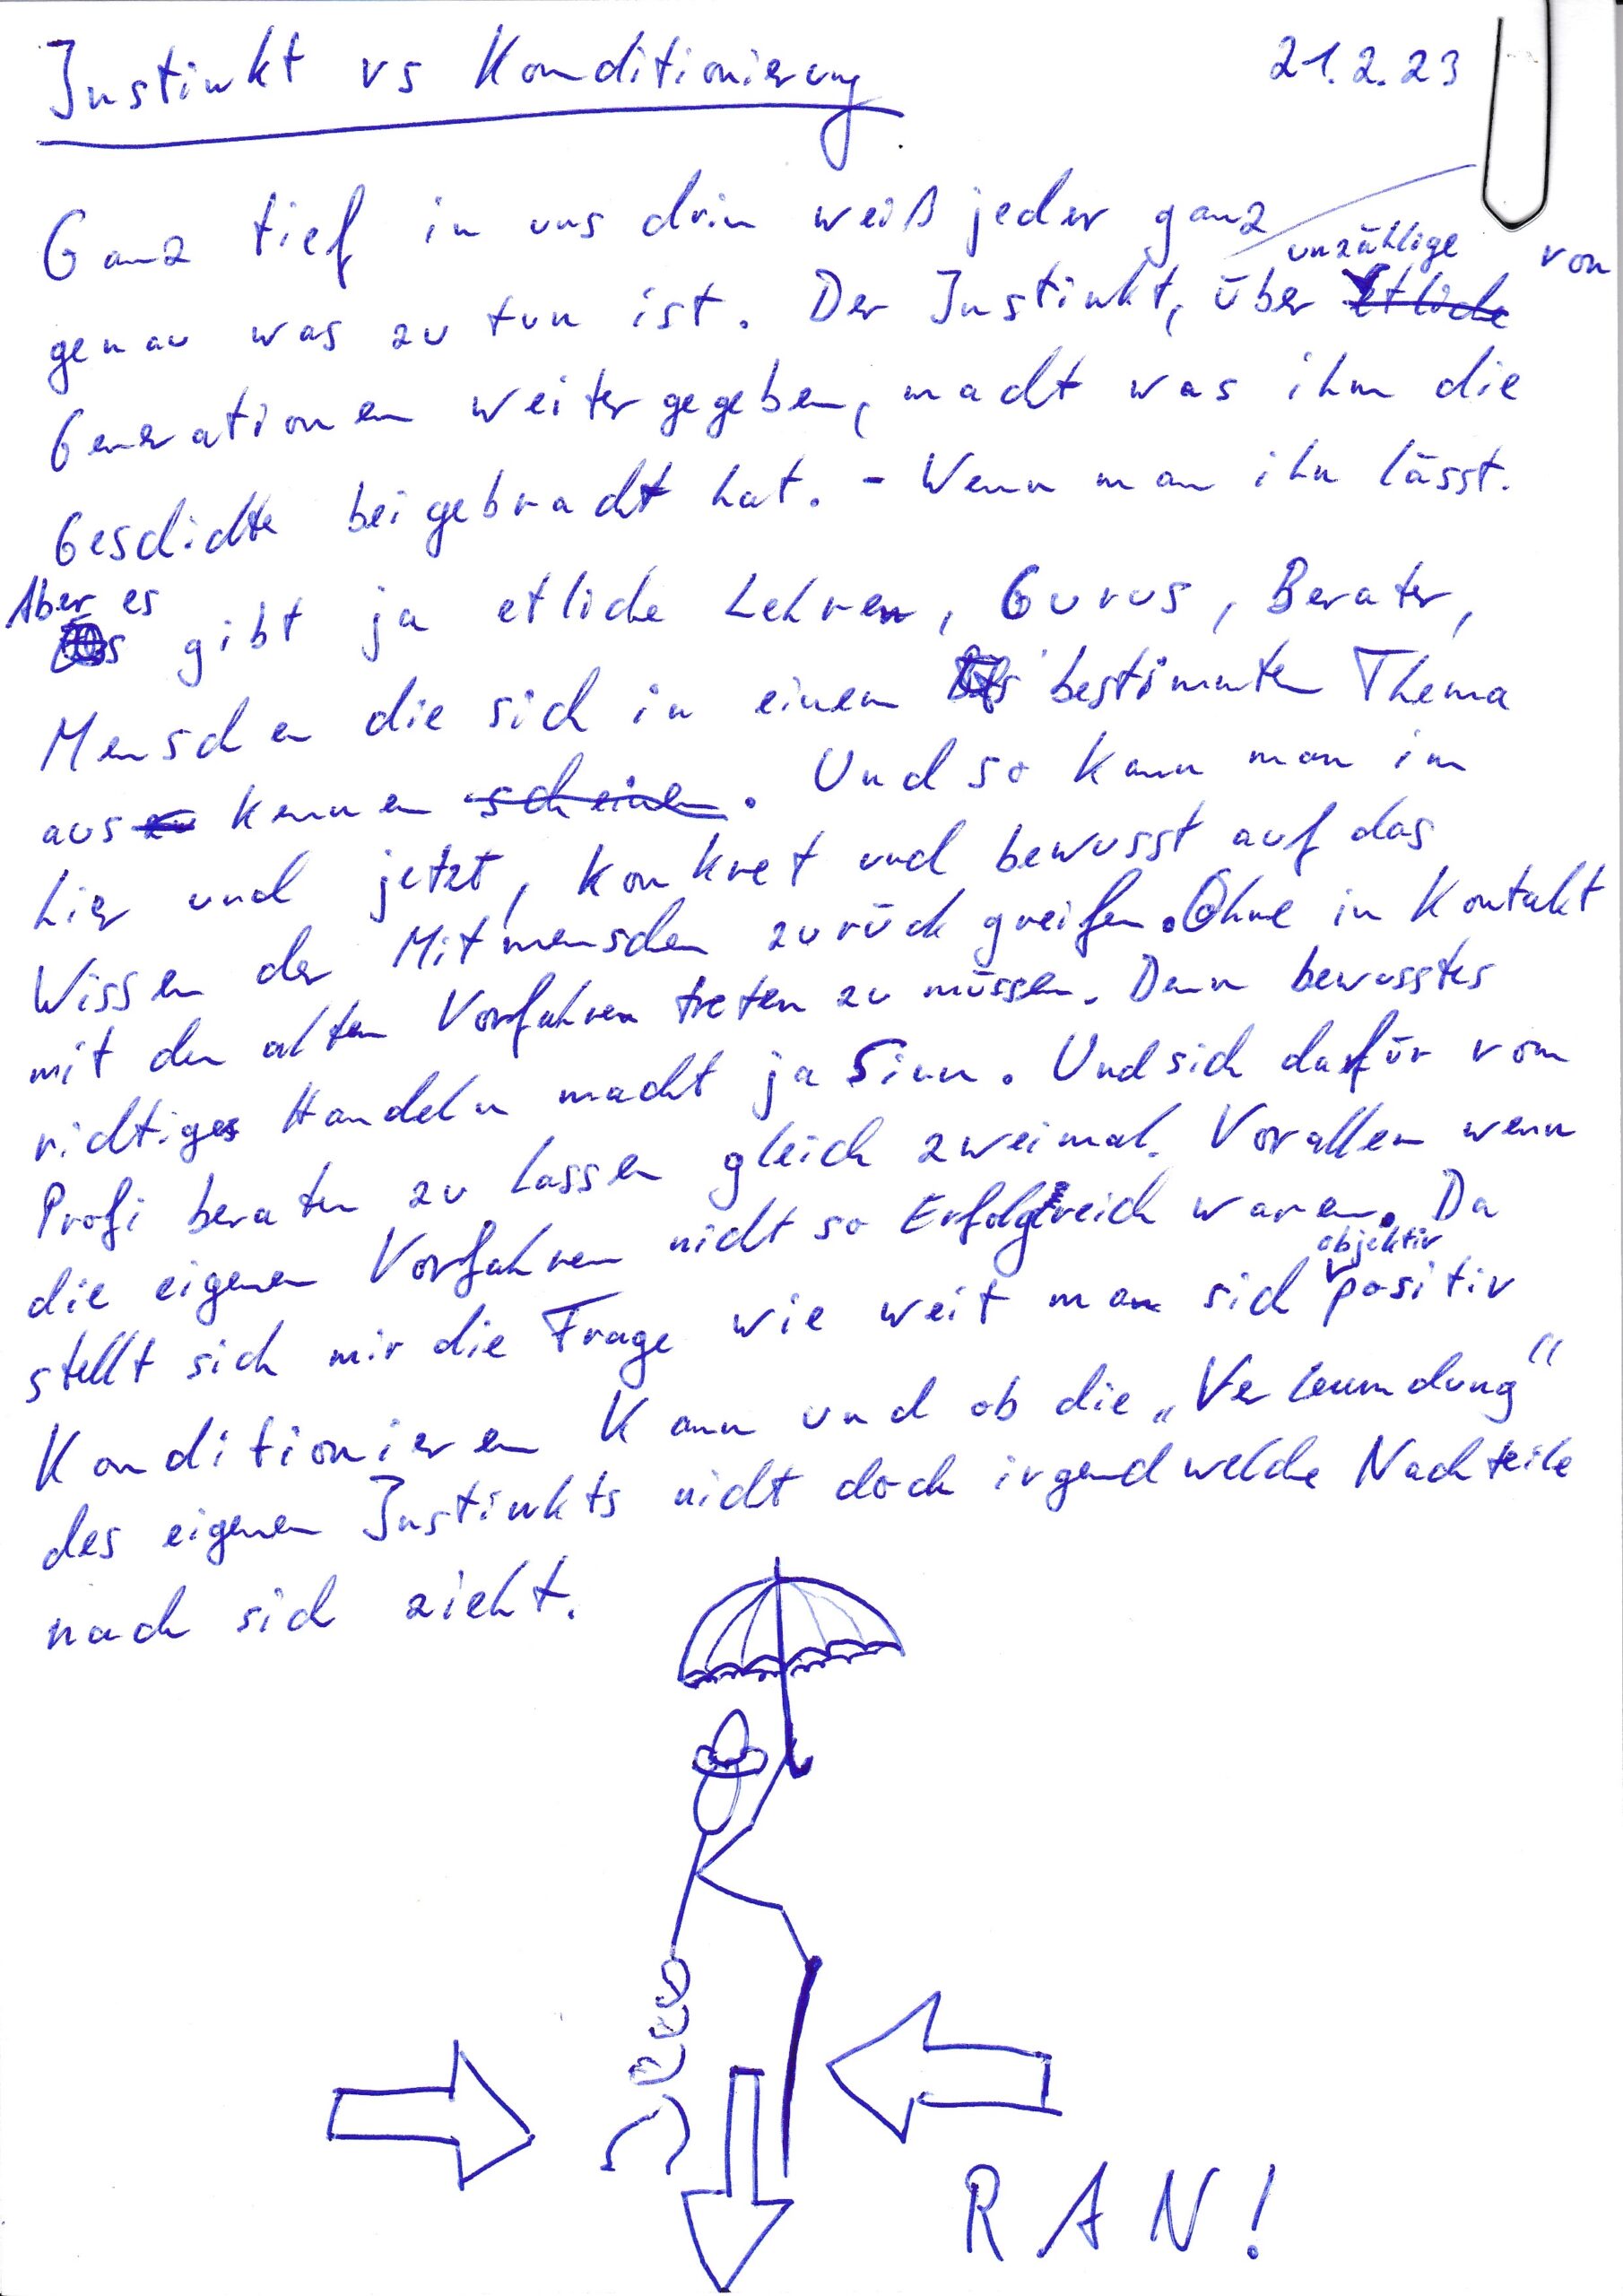 Instinkt vs Konditionierung 21.2.23
Ganz tief in uns drin weiß jeder ganz
genau was zu tun ist. Der Instinkt, über unzählige von
Generationen weitergegeben, macht was ihm die
Geschichte beigebracht hat. - Wenn man ihn lässt.
Aber es gibt ja etliche Lehren, Gurus, Berater,
Menschen die sich in einem bestimmten Thema
aus kennen scheinen. Und so kann man im
hier und jetzt, konkret und bewusst auf das
Wissen der Mitmenschen zurück greifen. Ohne in Kontakt
mit den alten Vorfahren treten zu müssen. Denn bewusstes
richtiges Handeln macht ja Sinn. Und sich dafür vom
Profi beraten zu lassen gleich zweimal. Vorallem wenn
die eigenen Vorfahren nicht so Erfolgreich waren. Da
stellt sich mir die Frage wie weit man sich objektiv positiv
Konditionieren kann und ob die „Verleumdung"
des eigenen Instinkts nicht doch irgendwelche Nachteile
nach sich zieht.
RAN!